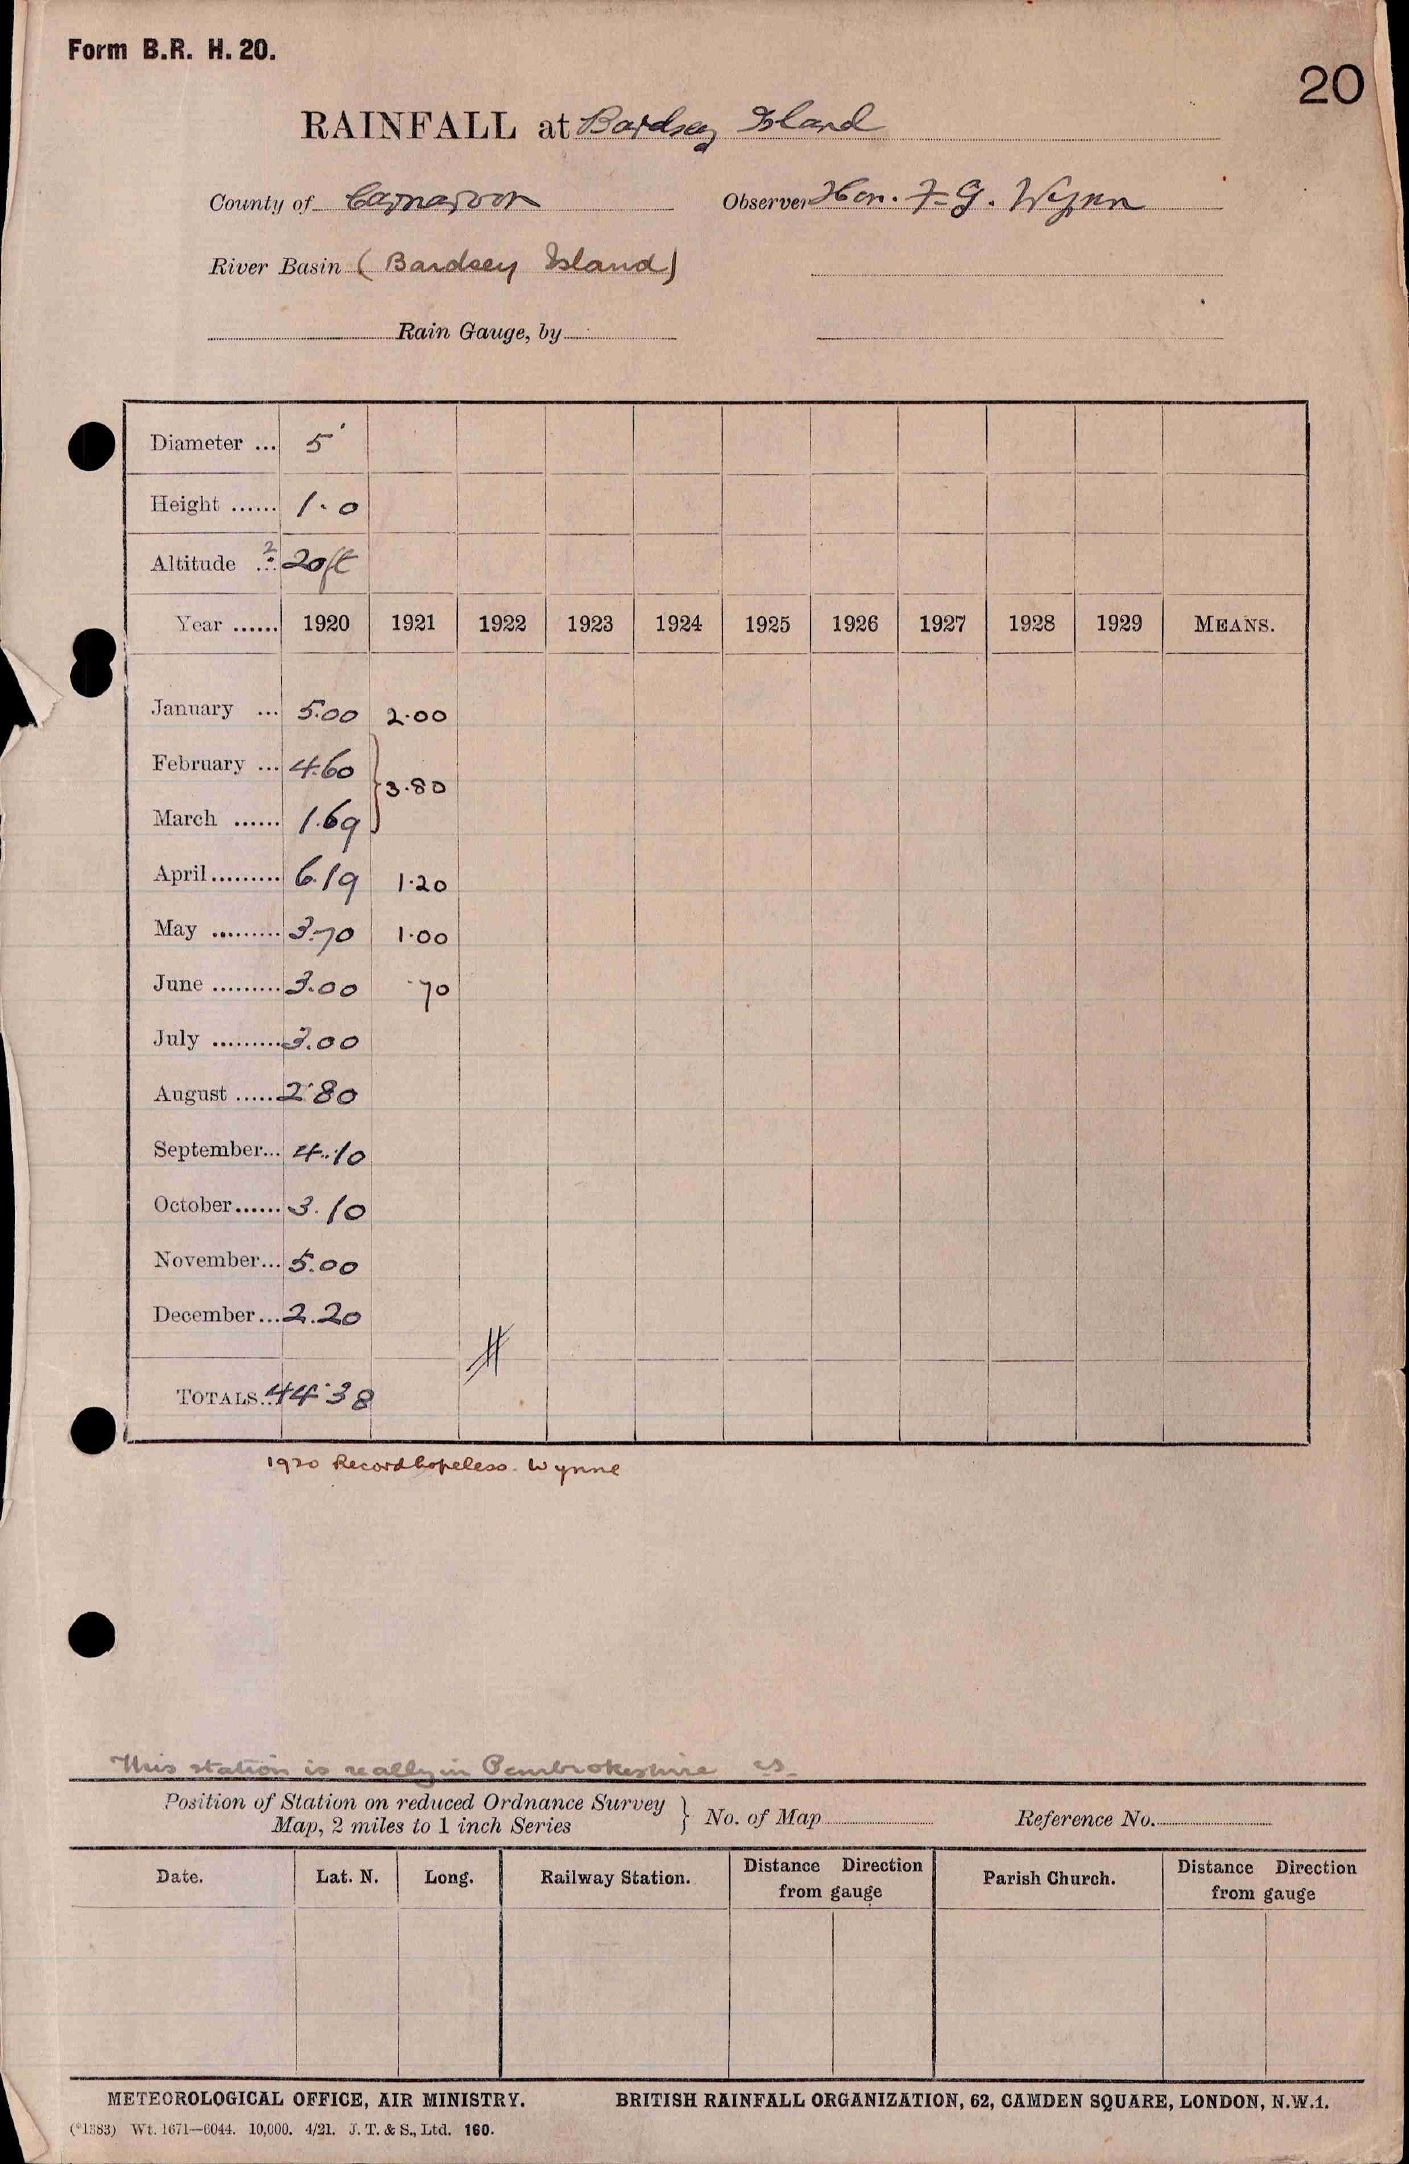 Form B.R. H. 20.
20
RAINFALL at Bardsey Island
County of Carnarvon Observer Hon. F. G. Wynn
River Basin (Bardsey Island)
Rain Gauge, by
Diameter ... 5"
Height ...... 1.0
Altitude ... ? 20ft
Year ...... 1920 1921 1922 1923 1924 1925 1926 1927 1928 1929 MEANS.
January ... 5.00 2.00
February ... 4.60
3.80
March ...... 1.69
April ......... 6.19 1.20
May ......... 3.70 1.00
June ......... 3.00 .70
July ......... 3.00
August ..... 2.80
September... 4.10
October...... 3.10
November... 5.00
December... 2.20
TOTALS... 44.38
1920 Record hopeless. Wynne
This station is really in Pembrokeshire
Position of Station on reduced Ordnance Survey
Map, 2 miles to 1 inch Series } No. of Map Reference No.
Date. Lat. N. Long. Railway Station. Distance Direction from gauge Parish Church. Distance Direction from gauge
METEOROLOGICAL OFFICE, AIR MINISTRY. BRITISH RAINFALL ORGANIZATION, 62, CAMDEN SQUARE, LONDON, N.W.1.
(*1383) Wt. 1671—6044. 10,000. 4/21. J. T. & S., Ltd. 160.